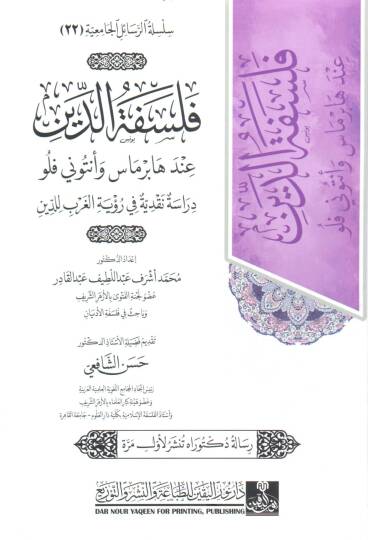 سِلسِلةُ الرَّسَائِل الجَامِعيَّة (٢٢)
فَلسَفَةُ الدِّينِ
عِنْدَ هَابرْمَاس وَأَنتُوني فلُو
دِرَاسَةٌ نَقْدِيَّةٌ فِي رُؤْيَةِ الغَربِ لِلدِّينِ
إعْدَادُ الدّكتُور
مُحَمَّد أَشرَف عَبْداللَّطِيف عَبْدالقَادِر
عُضْو لجنَة الفَتْوَى بِالأَزهَر الشَّريف
وَبَاحِث فِي فَلسَفَة الأَدْيَانِ
تَقدِيمُ فَضيلَةِ الأُسْتَاذِ الدّكتُور
حَسَن الشَّافِعيّ
رَئِيسُ اتِّحادِ المجَامِع اللُّغَوِيَّة العِلميَّة العَرَبيَّة
وَعُضو هَيئَةِ كِبَار العُلَماء بِالأَزهَر الشَّريف
وَأُستَاذ الفَلسَفَة الإسْلَاميَّة بِكُليَّة دَار العُلُوم - جَامعَة القَاهِرة
رِسَالَةُ دُكتُورَاه تُنْشَرُ لأوَّلِ مَرَّة
دَار نُور اليَقِين لِلطِّبَاعَةِ وَالنَّشرِ وَالتَّوزِيْع
DAR NOUR YAQEEN FOR PRINTING, PUBLISHING
فَلسَفَةُ الدِّينِ
عِنْدَ هَابرْمَاس وَأَنتُوني فلُو